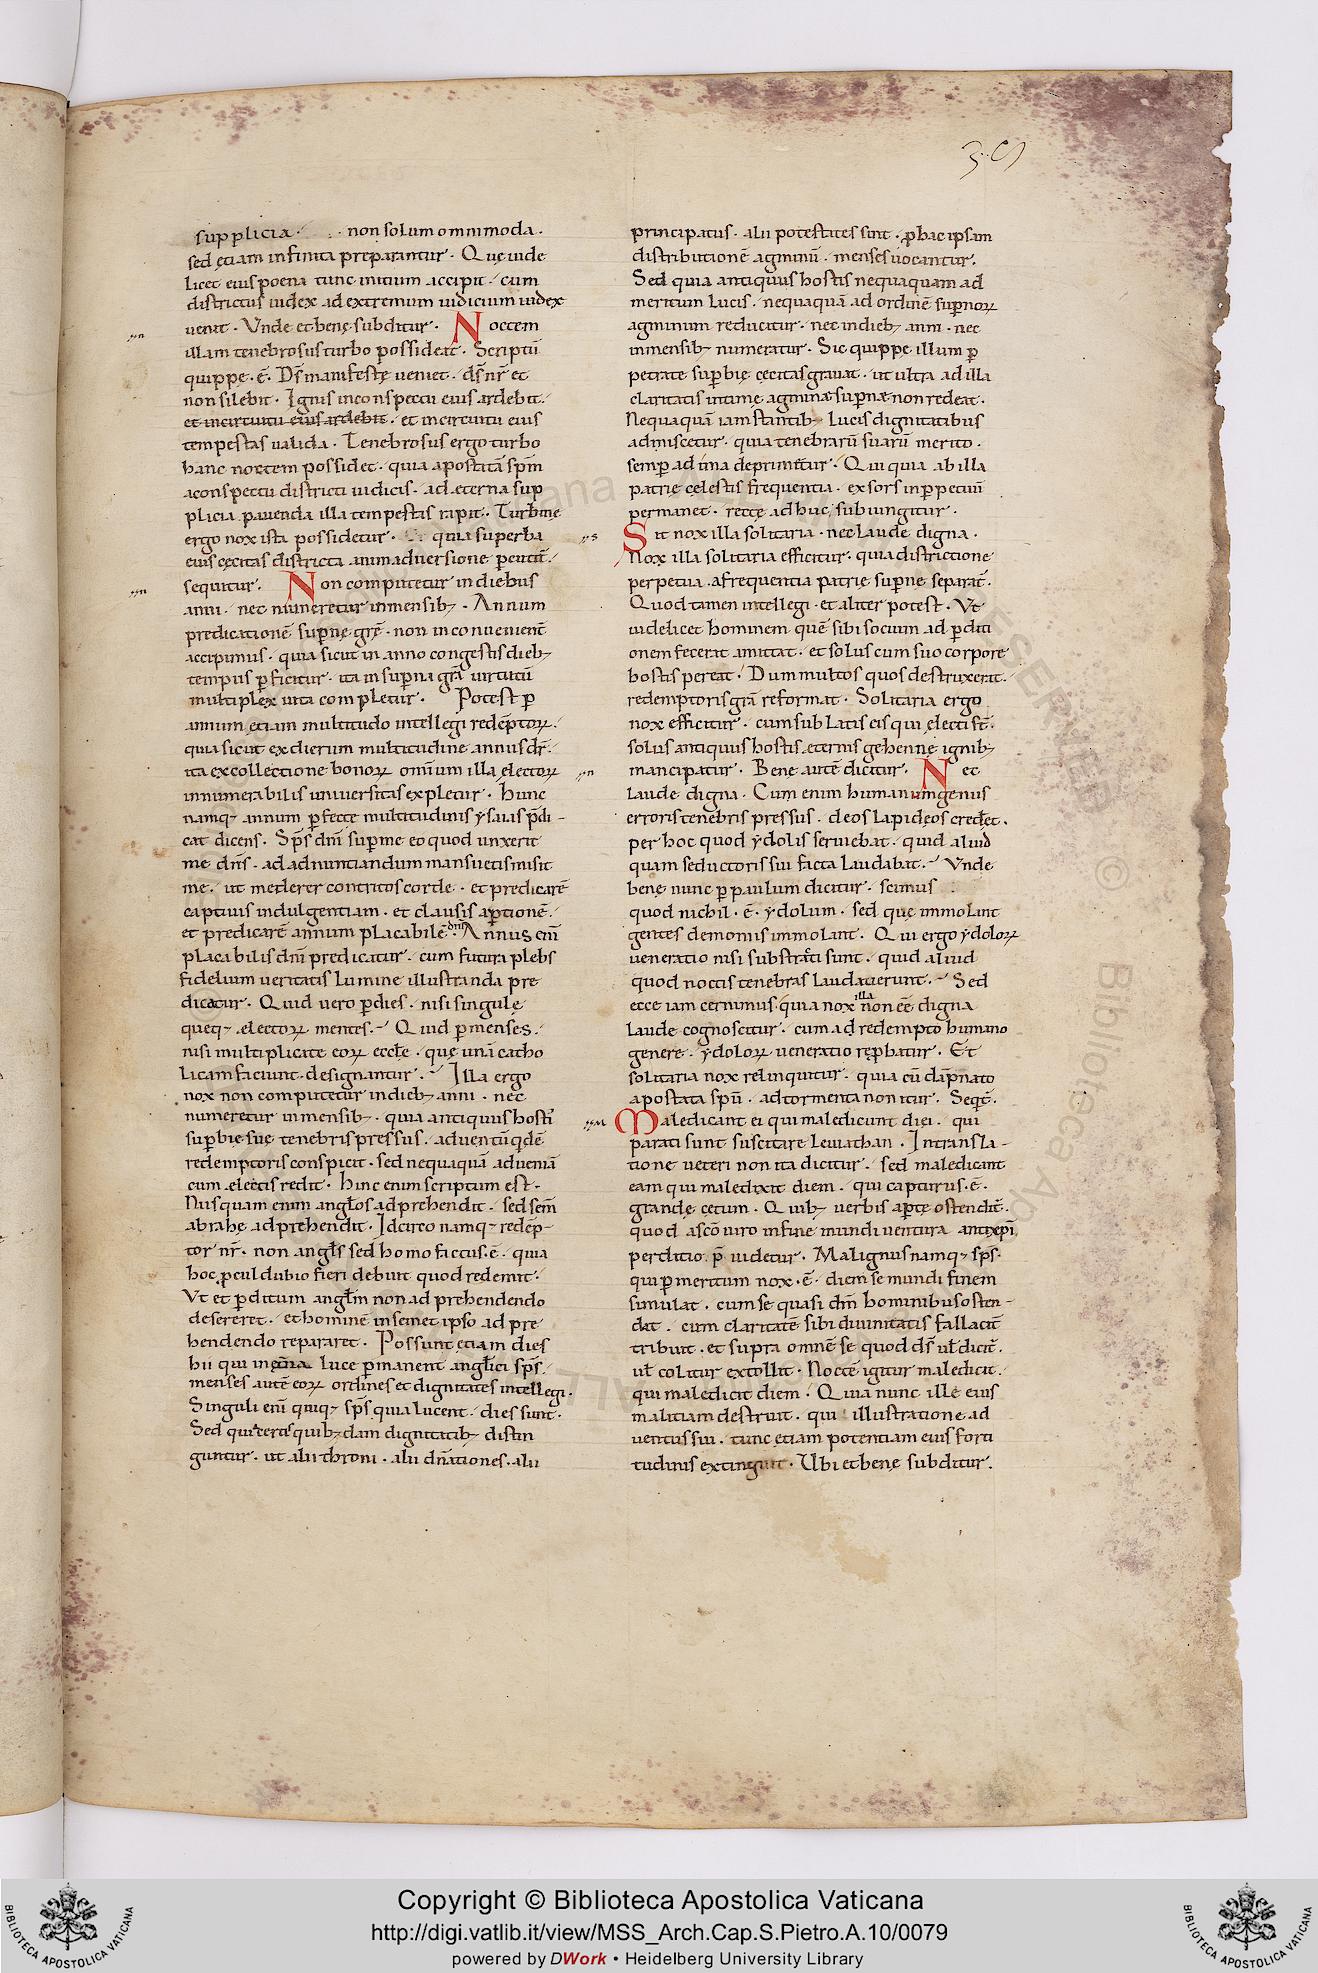 39
supplicia · non solum omnimoda ·
sed ętiam infinita preparantur · Quę uide
licet eius poena tunc initium accipit · cum
districtus iudex ad extremum iudicium iudex
uenit · Vnde et benę subditur · Noctem
illam tenebrosus turbo possideat · Scriptū
quippę · ē · Ds̄ manifestę ueniet · ds̄ nr̄ et
non silebit · Ignis in conspectu eius ardebit ·
et incircuitu eius ardebit · et incircuitu eius
tempestas ualida · Tenebrosus ergo turbo
hanc noctem possidet · quia apostatā sp̄m
aconspectu districti iudicis · ad ęterna sup
plicia pauenda illa tempestas rapit · Turbine
ergo nox ista possidetur · quia superba
eius cęcitas districta animaduersione ꝑcutit̄ ·
sequitur · Non computetur in diebus
anni · nec numeretur in mensibꝫ · Annum
predicationē suꝑnę grę̄ · non inconuenient̄
accipimus · quia sicut in anno congestis diebꝫ
tempus ꝑficitur · ita in suꝑna gr̄a uirtutū
multiplex uita completur · Potest ꝑ
annum ętiam multitudo intellegi redēptoꝝ ·
quia sicut ex dierum multitudine annus dr̄ ·
ita ex collectione bonoꝝ omīum illa ęlectoꝝ
innumerabilis uniuersitas expletur · Hunc
namqꝫ annum ꝑfectę multitudinis ysaias p̄di-
cat dicens · Sp̄s dn̄i super me eo quod unxerit
me dn̄s · ad adnuntiandum mansuetis misit
me · ut mederer contritos corde · et predicarē
captiuis indulgentiam · et clausis aꝑtionē ·
et predicarē annum placabilē dn̄o · Annus enī
placabilis dn̄i predicatur · cum futura plebs
fidelium ueritatis lumine illustranda pre
dicatur · Quid uero ꝑ dies · nisi singulę
quęqꝫ ęlectoꝝ mentes · Quid ꝑ menses ·
nisi multiplicatę eoꝝ eccl̄ę · quę unā catho
licam faciunt · designantur · Illa ergo
nox non computetur in diebꝫ anni · nec
numeretur in mensibꝫ · quia antiquus hostis
suꝑbię suę tenebris pressus · aduentū qdē
redemptoris conspicit · sed nequaquā ad ueniā
cum ęlectis redit · Hinc enim scriptum est ·
Nusquam enim angl̄os adprehendit · sed sem̄
abrahę adprehendit · Idcirco namqꝫ redēp-
tor nr̄ · non angl̄s sed homo factus · ē · quia
hoc ꝓculdubio fieri debuit quod redemit ·
Vt et ꝑditum angl̄m non adprehendendo
desereret · et hominē in semet ipso adpre
hendendo repararet · Possunt ętiam dies
hii qui in ęt̄na luce ꝑmanent angl̄ici sp̄s ·
menses autē eoꝝ ordines et dignitates intellegi ·
Singuli enī quiqꝫ sp̄s quia lucent · dies sunt ·
Sed quia certis quibꝫdam dignitatibꝫ distin
guntur · ut alii throni · alii dn̄ationes · alii
principatus · alii potestates sint · ꝓ hac ipsam
distributionē agminū · menses uocantur ·
Sed quia antiquus hostis nequaquam ad
meritum lucis · nequaquā ad ordinē suꝑnoꝝ
agminum reducitur · nec in diebꝫ anni · nec
in mensibꝫ numeratur · Sic quippę illum ꝑ
petratę suꝑbię cęcitas grauat · ut ultra ad illa
claritatis intimę agmina suꝑna non redeat ·
Nequaquā iam stantibꝫ lucis dignitatibus
admiscetur · quia tenebrarū suarū merito ·
semꝑ ad ima deprimetur · Qui quia ab illa
patrię cęlestis frequentia · exsors in ꝑpetuū
permanet · rectę adhuc subiungitur ·
Sit nox illa solitaria · nec laude digna ·
Nox illa solitaria efficitur · quia districtione
perpetua · a frequentia patrię suꝑnę separat̄ ·
Quod tamen intellegi · et aliter potest · Vt
uidelicet hominem quē sibi socium ad ꝑditi
onem fecerat amittat · et solus cum suo corpore
hostis pereat · Dum multos quos destruxerit ·
redemptoris gr̄a reformat · Solitaria ergo
nox efficitur · cum sublatis eis qui ęlecti st̄ ·
solus antiquus hostis ęternis gehennę ignibꝫ
mancipatur · Benę autē dicitur · Nec
laude digna · Cum enim humanum genus
erroris tenebris pressus · deos lapidęos crederet ·
per hoc quod ydolis seruiebat · quid aliud
quam seductoris sui facta laudabat · Vnde
benę nunc ꝑ paulum dicitur · scimus
quod nichil · ē · ydolum · sed quę immolant
gentes demoniis immolant · Qui ergo ydoloꝝ
ueneratio nisi substrati sunt · quid aliud
quod noctis tenebras laudauerunt · Sed
ecce iam cernimus quia nox illa non eē digna
laude cognoscitur · cum a redempto humano
genere · ydoloꝝ ueneratio reꝓbatur · Et
solitaria nox relinquitur · quia cū dāpnato
apostata spū · ad tormenta non itur · Seqt̄ ·
Maledicant ei qui maledicunt diei · qui
parati sunt suscitare leuiathan · In transla-
tione ueteri non ita dicitur · sed maledicant
eam qui maledixit diem · qui capturus · ē ·
grandę cetum · Quibꝫ uerbis aꝑtę ostendit̄ ·
quod asco uiro in fine mundi uentura antixp̄i
perditio · p̄uidetur · Malignus namqꝫ sp̄s ·
qui ꝑ meritum nox · ē · diem se mundi finem
simulat · cum se quasi dm̄ hominibus osten-
dat · cum claritatē sibi diuinitatis fallacit̄
tribuit · et supra omnē se quod ds̄ ul̄ dicit̄ ·
ul̄ colitur extollit · Noctē igitur maledicit ·
qui maledicit diem · Quia nunc ille eius
malitiam destruit · qui illustratione ad
uentus sui · tunc ętiam potentiam eius forti
tudinis extinguit · Ubi et benę subditur ·
Copyright © Biblioteca Apostolica Vaticana
http://digi.vatlib.it/view/MSS_Arch.Cap.S.Pietro.A.10/0079
powered by DWork • Heidelberg University Library
BIBLIOTECA APOSTOLICA VATICANA
BIBLIOTECA APOSTOLICA VATICANA